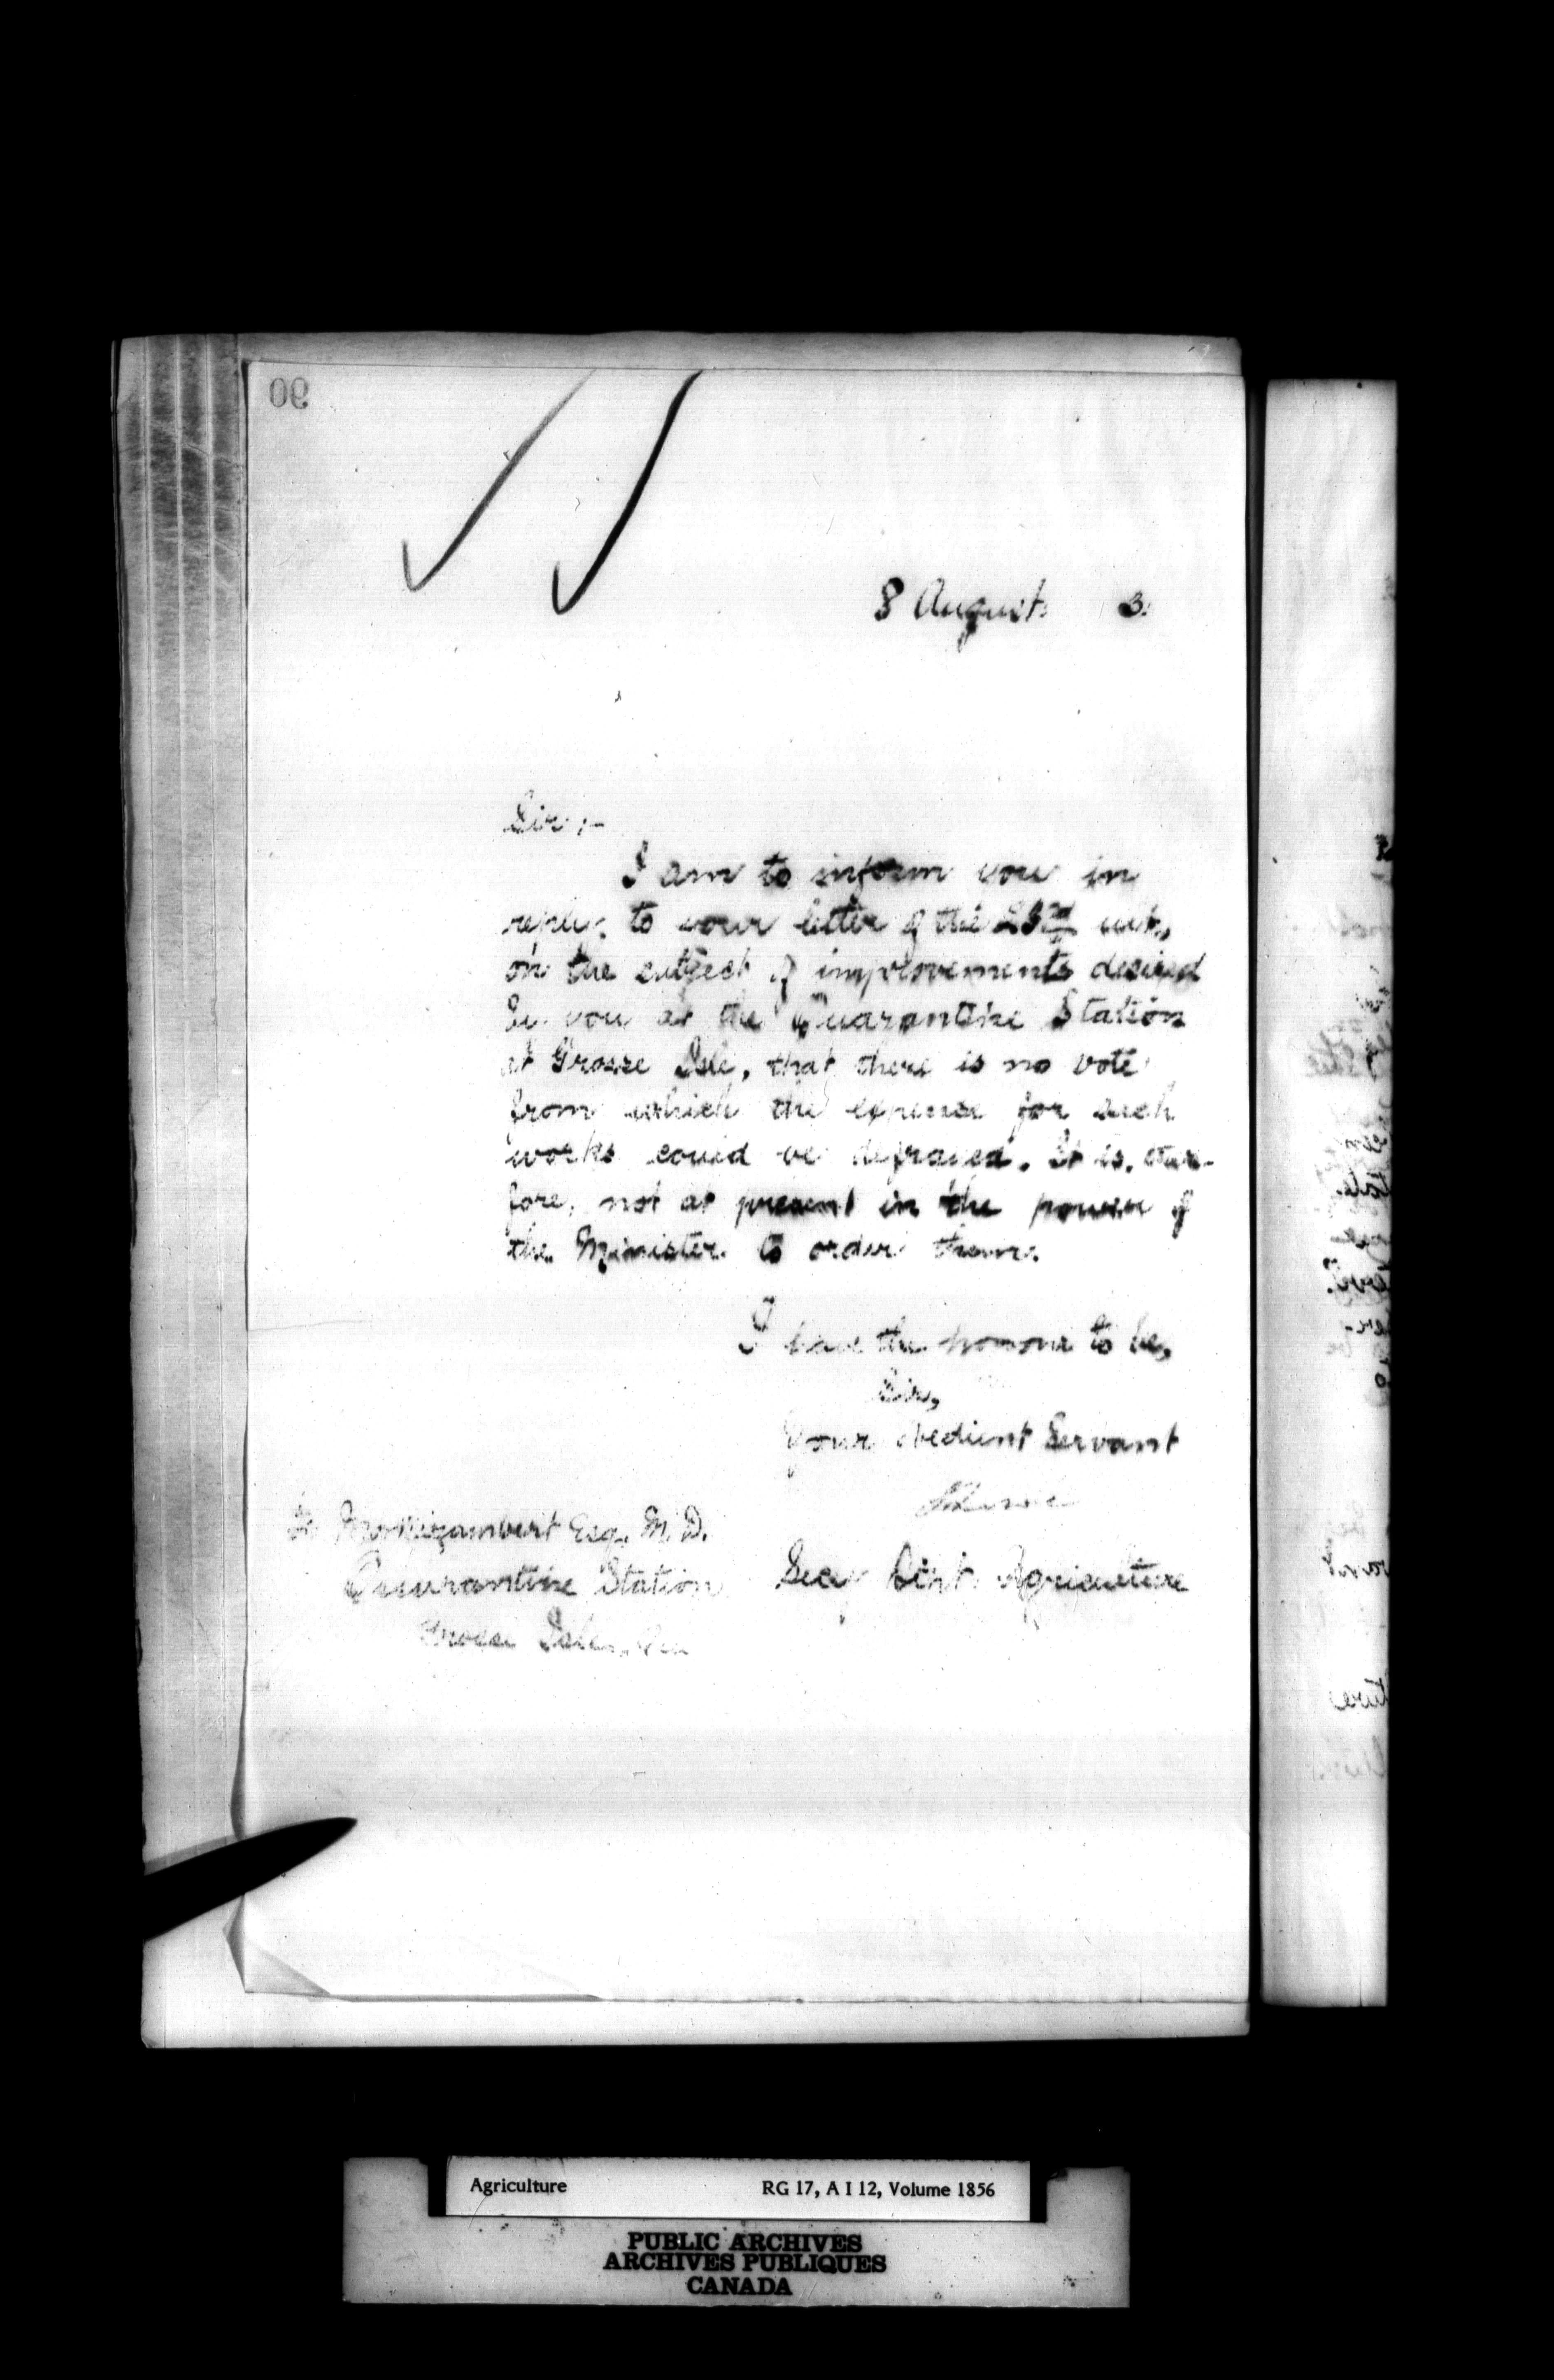 90
8 August 3.
Sir:-
I am to inform you in
reply to your letter of the 23rd ult,
on the subject of improvements desired
by you at the Quarantine Station
at Grosse Isle, that there is no vote
from which the expense for such
works could be defrayed. It is, there-
fore, not at present in the power of
the Minister to order them.
I have the honour to be,
Sir,
Your obedient Servant
Montizambert Esq. M.D.
Quarantine Station
Secy Dept. Agriculture
Grosse Isle,
Agriculture RG 17, A I 12, Volume 1856
PUBLIC ARCHIVES
ARCHIVES PUBLIQUES
CANADA